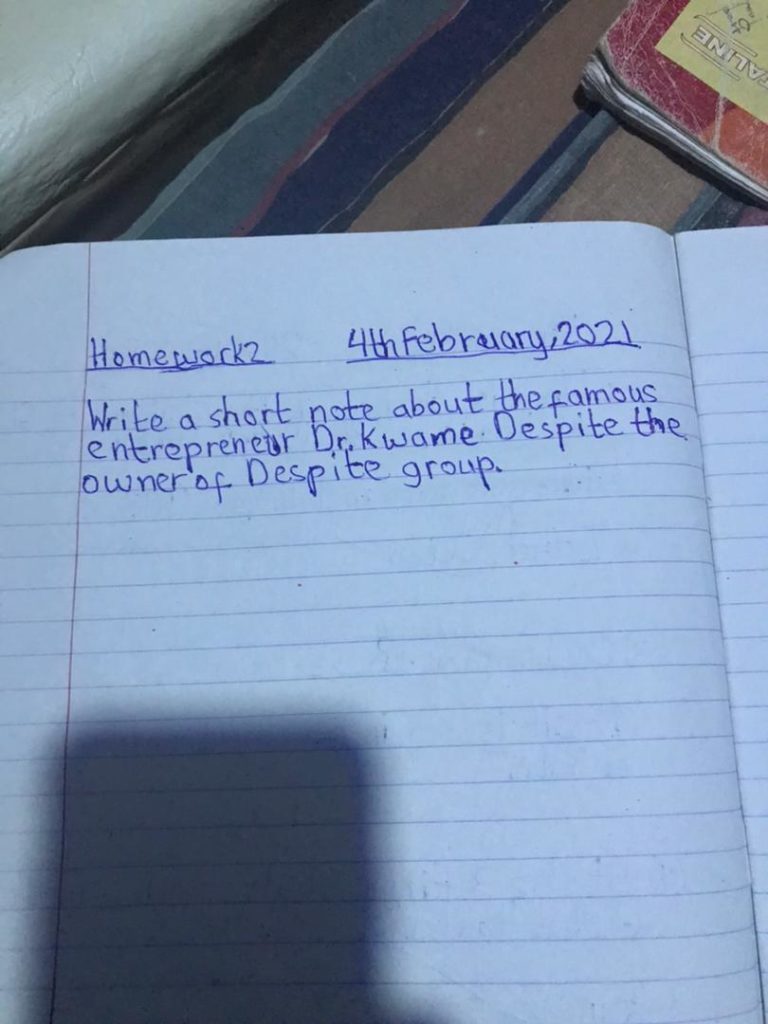 TALINE
Homework2 4th February, 2021
Write a short note about the famous
entrepreneur Dr. Kwame Despite the
owner of Despite group.